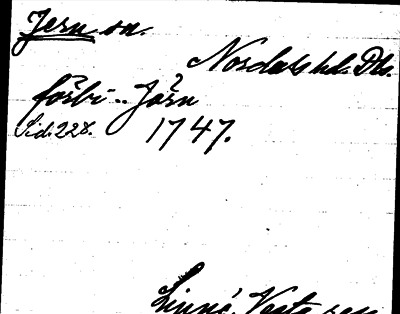 Jern sn.
Nordals hd. Dls.
förbi .. Jörn
Sid. 228. 1747.
Linné, Vestg. resa